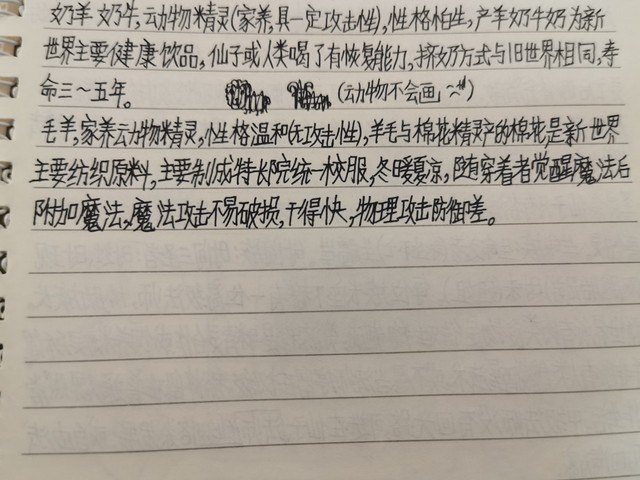 奶羊奶牛,动物精灵(家养,具一定攻击性),性格怕生,产羊奶牛奶为新
世界主要健康饮品,仙子或人类喝了有恢复能力,挤奶方式与旧世界相同,寿
命三~五年。 (动物不会画 )
毛羊,家养动物精灵,性格温和(无攻击性),羊毛与棉花精灵产的棉花是新世界
主要纺织原料,主要制成特长院统一校服,冬暖夏凉,随穿着者觉醒魔法后
附加魔法,魔法攻击不易破损,干得快,物理攻击防御差。